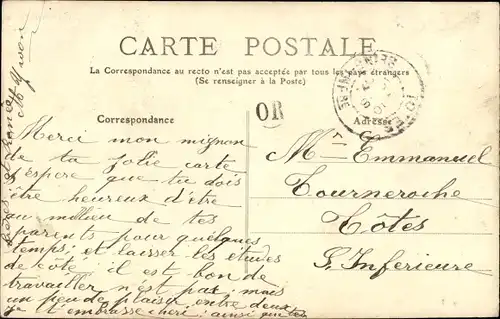 CARTE POSTALE
La Correspondance au recto n'est pas acceptée par tous les pays étrangers
(Se renseigner à la Poste)
OR
Correspondance
Adresse
Merci mon mignon
de ta jolie carte
j'espère que tu dois
être heureux d'être
au milieu de tes
parents pour quelques
temps; et laisser tes études
de côté, il est bon de
travailler n'est pas; mais
un peu de plaisir entre deux
je t'embrasse cheri; ainsi que tes
M Emmanuel
Tourneroche
Tôtes
S. Inferieure